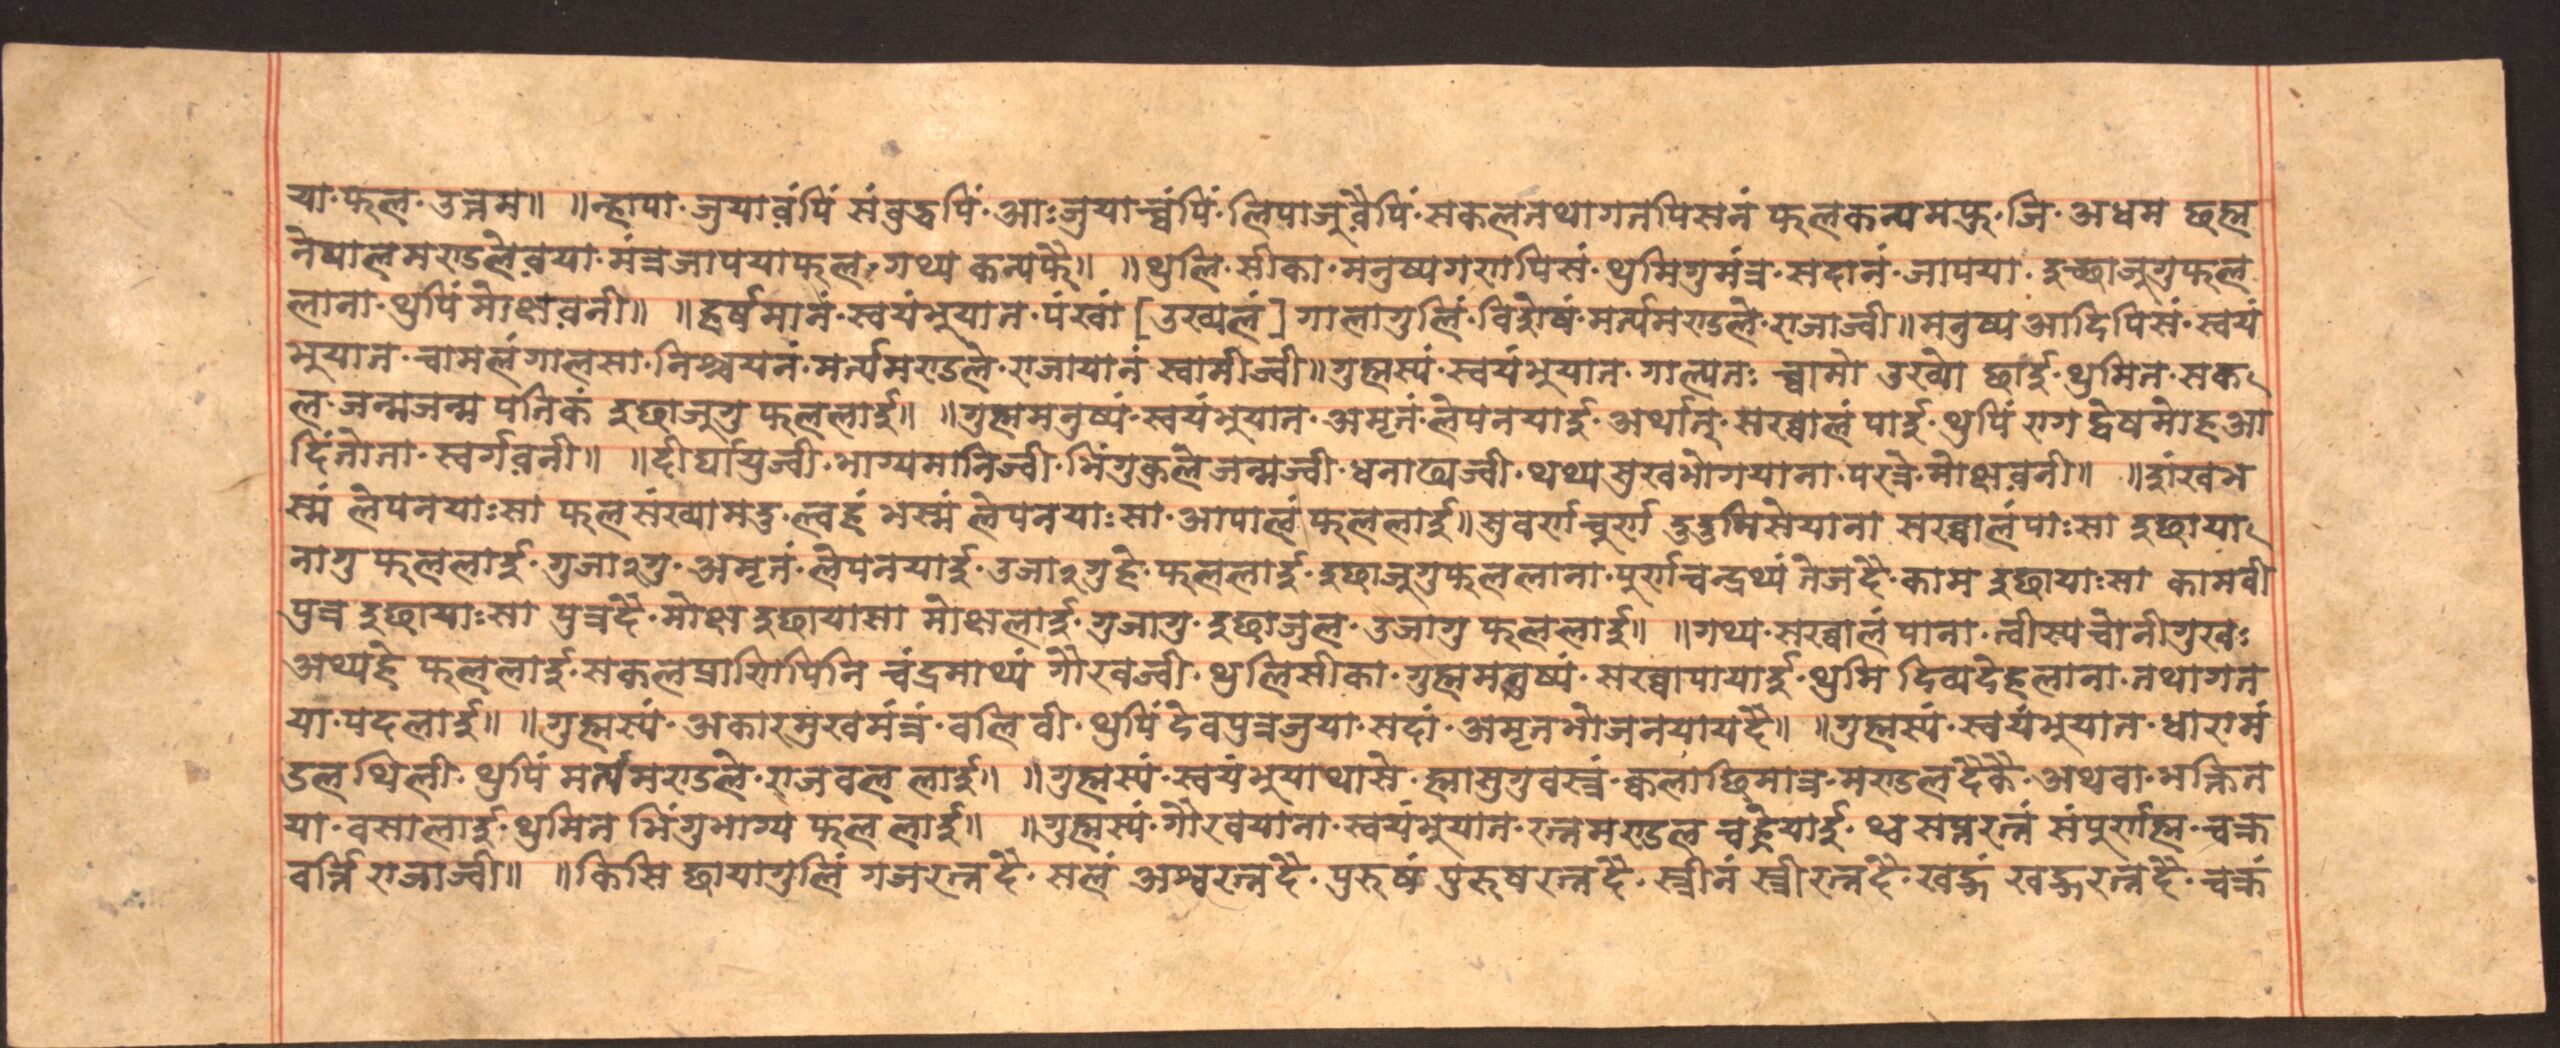 या·फल·उत्तम॥ ॥न्हापा·जुयावंपिं संबुद्धपिं·आः·जुयाच्वंपिं·लिपाजुवैपिं·सकलतथागतपिसनं फलकन्यमफु·जि·अधम छह्म
नेपालमण्डलेवया·मंत्रजापयाफल·गथ्य कन्यफै॥ ॥थुलि·सीका·मनुष्यगणपिसं·थुमिगुमंत्र·सदानं·जापया·इच्छाजुगुफल
लाना·थुपिं मोक्षवनी॥ ॥हर्षमानं·स्वयंभुयात·पंखां [उख्यलं] गालागुलिं·विशेषं·मर्त्यमण्डले·राजाज्वी॥मनुष्यआदिपिसं·स्वयं
भुयात·चामलंगालसा·निश्चयनं·मर्त्यमण्डले·राजायानं स्वामीज्वी॥गुह्मस्यं·स्वयंभुयात·गाल्पतः च्वामो उख्यो छाई·थुमित·सक
ल·जन्मजन्म पतिकं इछाजुगु फललाई॥ ॥गुह्ममनुष्यं·स्वयंभुयात·अमृतं·लेपनयाई·अर्थात्·सख्वालं पाई·थुपिं राग द्वेषमोहआ
दिंतोता·स्वर्गवनी॥ ॥दीर्घायुज्वी·भाग्यमानिज्वी·भिंगुकुले जन्मज्वी·धनाढ्यज्वी·थथ्यसुखभोगयाना·परत्रे·मोक्षवनी॥ ॥शंखभ
स्मं लेपनयाःसा फलसंख्यामदु·ल्वहं भस्मं लेपनयाःसा·आपालं फललाई॥सुवर्णचूर्ण दुदुमिसेयाना सख्वालंपाःसा इछाया
नागु फललाई·गुजाःगु·अमृतं·लेपनयाई·उजाःगुहे·फललाई·इछाजुगुफललाना·पुर्णचन्द्रथ्यं तेजदै·काम इछायाःसा कामवी
पुत्र इछायाःसा पुत्रदै·मोक्ष इछायासा मोक्षलाई·गुजागु·इछाजुल·उजागु फललाई॥ ॥गथ्य·सख्वालं पाना·त्वीस्यचोनीगुखः
अथ्यहे फललाई·सकलप्राणिपिनि चंद्रमाथ्यं गौरवज्वी·थुलिसीका·गुह्ममनुष्यं·सख्वापायाई·थुमि दिव्यदेहलाना·तथागत
या·पदलाई॥ ॥गुह्मस्यं·अकारमुखमंत्रं·बलिबी·थुपिं देवपुत्रजुया·सदां·अमृतभोजनयायदै॥ ॥गुह्मस्यं·स्वयंभुयात·धारामं
डलथिली·थुपिं मर्त्यमण्डले·राजबल लाई॥ ॥गुह्मस्यं·स्वयंभुयाथासे·ह्मासुगुवस्त्रं·क्वलाछिमात्र·मण्डलदैकै·अथवा·भक्तित
या·वसालाई·थुमित भिंगुभाग्य फललाई॥ ॥गुह्मस्यं·गौरवयाना·स्वयंभुयात·रत्नमण्डल च्वहेयाई·थ्व सप्तरत्नं संपुर्णह्म·चक्र
वर्त्ति राजाज्वी॥ ॥किसि छायागुलिं गजरत्नदै·सलं अश्वरत्नदै·पुरुषं पुरुषरत्नदै·स्त्रीनं स्त्रीरत्नदै·खड्गं खड्गरत्नदै·चक्रं